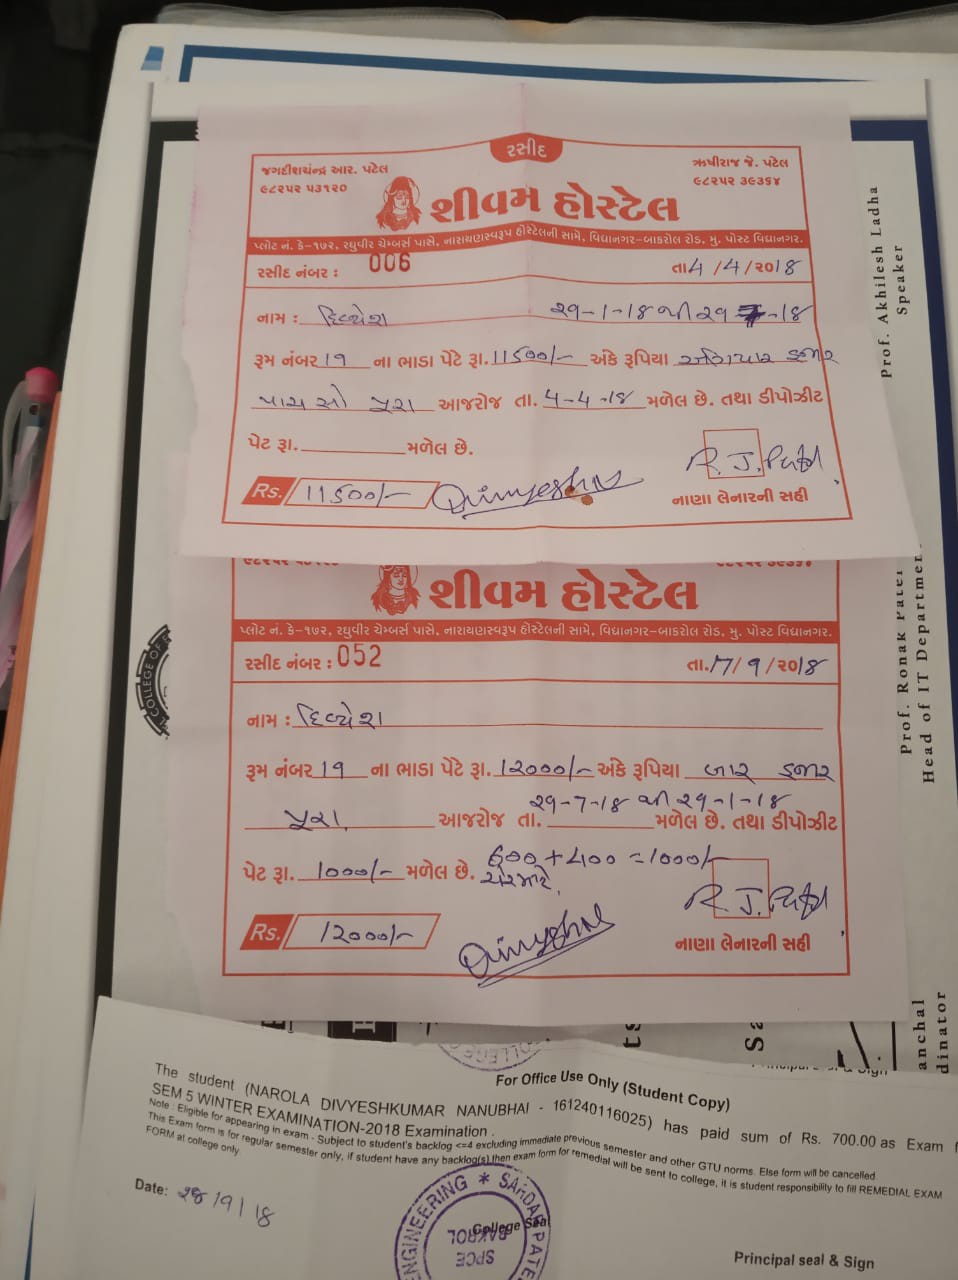 રસીદ
જગદીશચંદ્ર આર. પટેલ
૯૮૨૫૨ ૫૩૧૨૦
ઋષીરાજ જે. પટેલ
૯૮૨૫૨ ૩૯૩૬૪
શીવમ હોસ્ટેલ
પ્લોટ નં. કે-૧૭૨, રઘુવીર ચેમ્બર્સ પાસે, નારાયણસ્વરૂપ હોસ્ટેલની સામે, વિદ્યાનગર-બાકરોલ રોડ, મુ. પોસ્ટ વિદ્યાનગર.
રસીદ નંબર : 006 તા 4/4/૨૦18
નામ : દિવ્યેશ ૨૯-1-18 થી ૨૯-7-18
રૂમ નંબર 19 ના ભાડા પેટે રૂા. 11500/- અંકે રૂપિયા અગિયાર હજાર
પાચ સો પુરા આજરોજ તા. 4-4-18 મળેલ છે. તથા ડીપોઝીટ
પેટ રૂા. મળેલ છે.
R. J. Patel
Rs. 11500/- Divyesh
નાણા લેનારની સહી
શીવમ હોસ્ટેલ
પ્લોટ નં. કે-૧૭૨, રઘુવીર ચેમ્બર્સ પાસે, નારાયણસ્વરૂપ હોસ્ટેલની સામે, વિદ્યાનગર-બાકરોલ રોડ, મુ. પોસ્ટ વિદ્યાનગર.
રસીદ નંબર : 052 તા. 17/9/૨૦18
નામ : દિવ્યેશ
રૂમ નંબર 19 ના ભાડા પેટે રૂા. 12000/- અંકે રૂપિયા બાર હજાર
૨૯-7-18 થી ૨૯-1-18
પુરા આજરોજ તા. મળેલ છે. તથા ડીપોઝીટ
પેટ રૂા. 1000/- મળેલ છે. 600 + 400 = 1000/-
R. J. Patel
Rs. 12000/- Divyesh
નાણા લેનારની સહી
Prof. Akhilesh Ladha
Speaker
Prof. Ronak Patel
Head of IT Department
anchal
dinator
COLLEGE OF
For Office Use Only (Student Copy)
The student (NAROLA DIVYESHKUMAR NANUBHAI - 161240116025) has paid sum of Rs. 700.00 as Exam f
SEM 5 WINTER EXAMINATION-2018 Examination .
Note : Eligible for appearing in exam - Subject to student's backlog <=4 excluding immediate previous semester and other GTU norms. Else form will be cancelled.
This Exam form is for regular semester only, if student have any backlog(s) then exam form for remedial will be sent to college, it is student responsibility to fill REMEDIAL EXAM
FORM at college only.
Date: 28/9/18
ENGINEERING * SARDAR PATEL
College Seal
SPCE
BAKROL
Principal seal & Sign